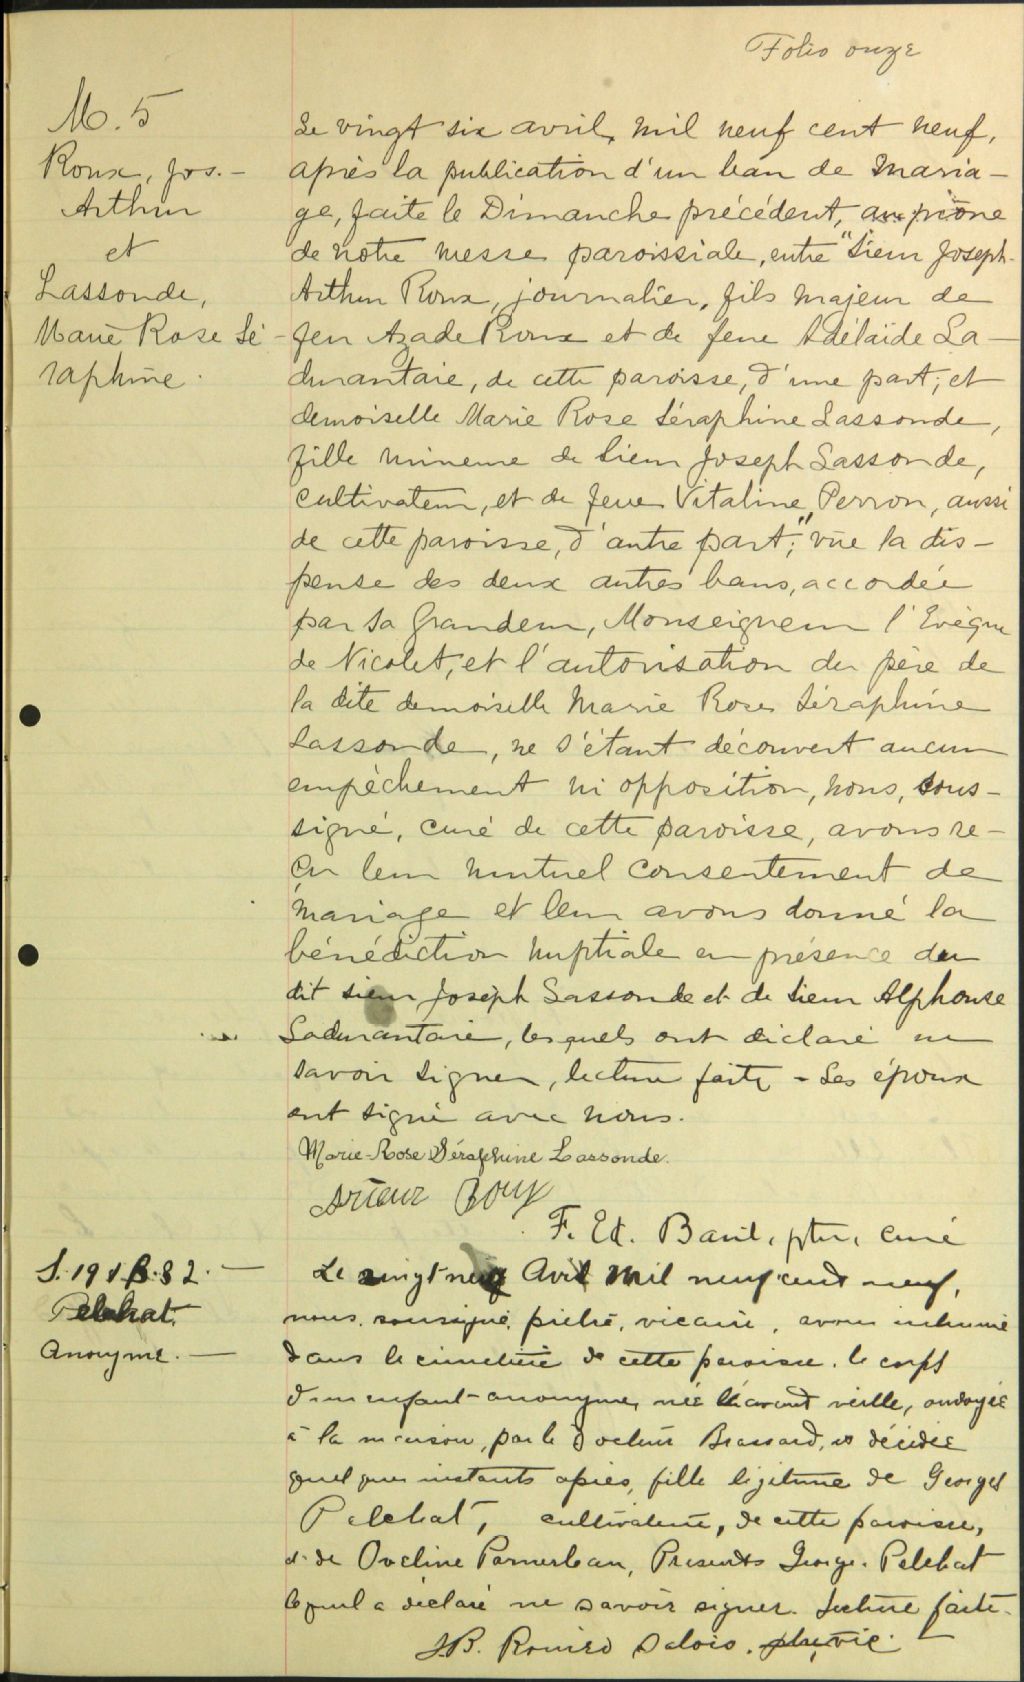 Folio onze
M. 5
Roux, Jos. -
Arthur
et
Lassonde,
Marie Rose Sé-
raphine.
Le vingt six avril, mil neuf cent neuf,
après la publication d'un ban de maria-
ge, faite le Dimanche précédent, au prône
de notre messe paroissiale, entre "Sieur Joseph-
Arthur Roux, journalier, fils majeur de
feu Azade Roux et de feue Adélaïde La-
durantaie, de cette paroisse, d'une part; et
demoiselle Marie Rose Séraphine Lassonde,
fille mineure de Sieur Joseph Lassonde,
cultivateur, et de feue Vitaline Perron, aussi
de cette paroisse, d'autre part;" vûe la dis-
pense des deux autres bans, accordée
par Sa Grandeur, Monseigneur l'Evèque
de Nicolet, et l'autorisation du père de
la dite demoiselle Marie Rose Séraphine
Lassonde, ne s'étant découvert aucun
empêchement ni opposition, nous, sous-
signé, curé de cette paroisse, avons re-
çu leur mutuel consentement de
mariage et leur avons donné la
bénédiction nuptiale en présence du
dit sieur Joseph Lassonde et de Sieur Alphonse
Ladurantaie, lesquels ont déclaré ne
savoir signer, lecture faite - Les époux
ont signé avec nous.
Marie-Rose Séraphine Lassonde.
Arteur Roux
F. Ed. Baril, ptre, curé
S. 19 B. 32. -
Pelchat.
Anonyme. -
Le vingt neuf Avril mil neuf cent neuf,
nous, soussigné, prêtre, vicaire, avons inhumé
dans le cimetière de cette paroisse, le corps
d'un enfant anonyme, née l'avant veille, ondoyée
à la maison, par le Docteur Brassard, et décédée
quelques instants après, fille légitime de Georges
Pelchat, cultivateur, de cette paroisse,
et de Oveline Parmerleau, Presents George Pelchat
lequel a déclaré ne savoir signer. Lecture faite.
J.B. Roméo Salois, ptre, vic. -